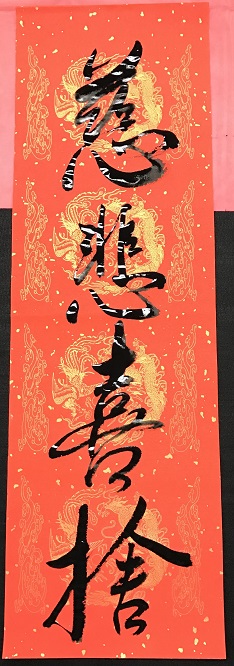 慈悲喜捨